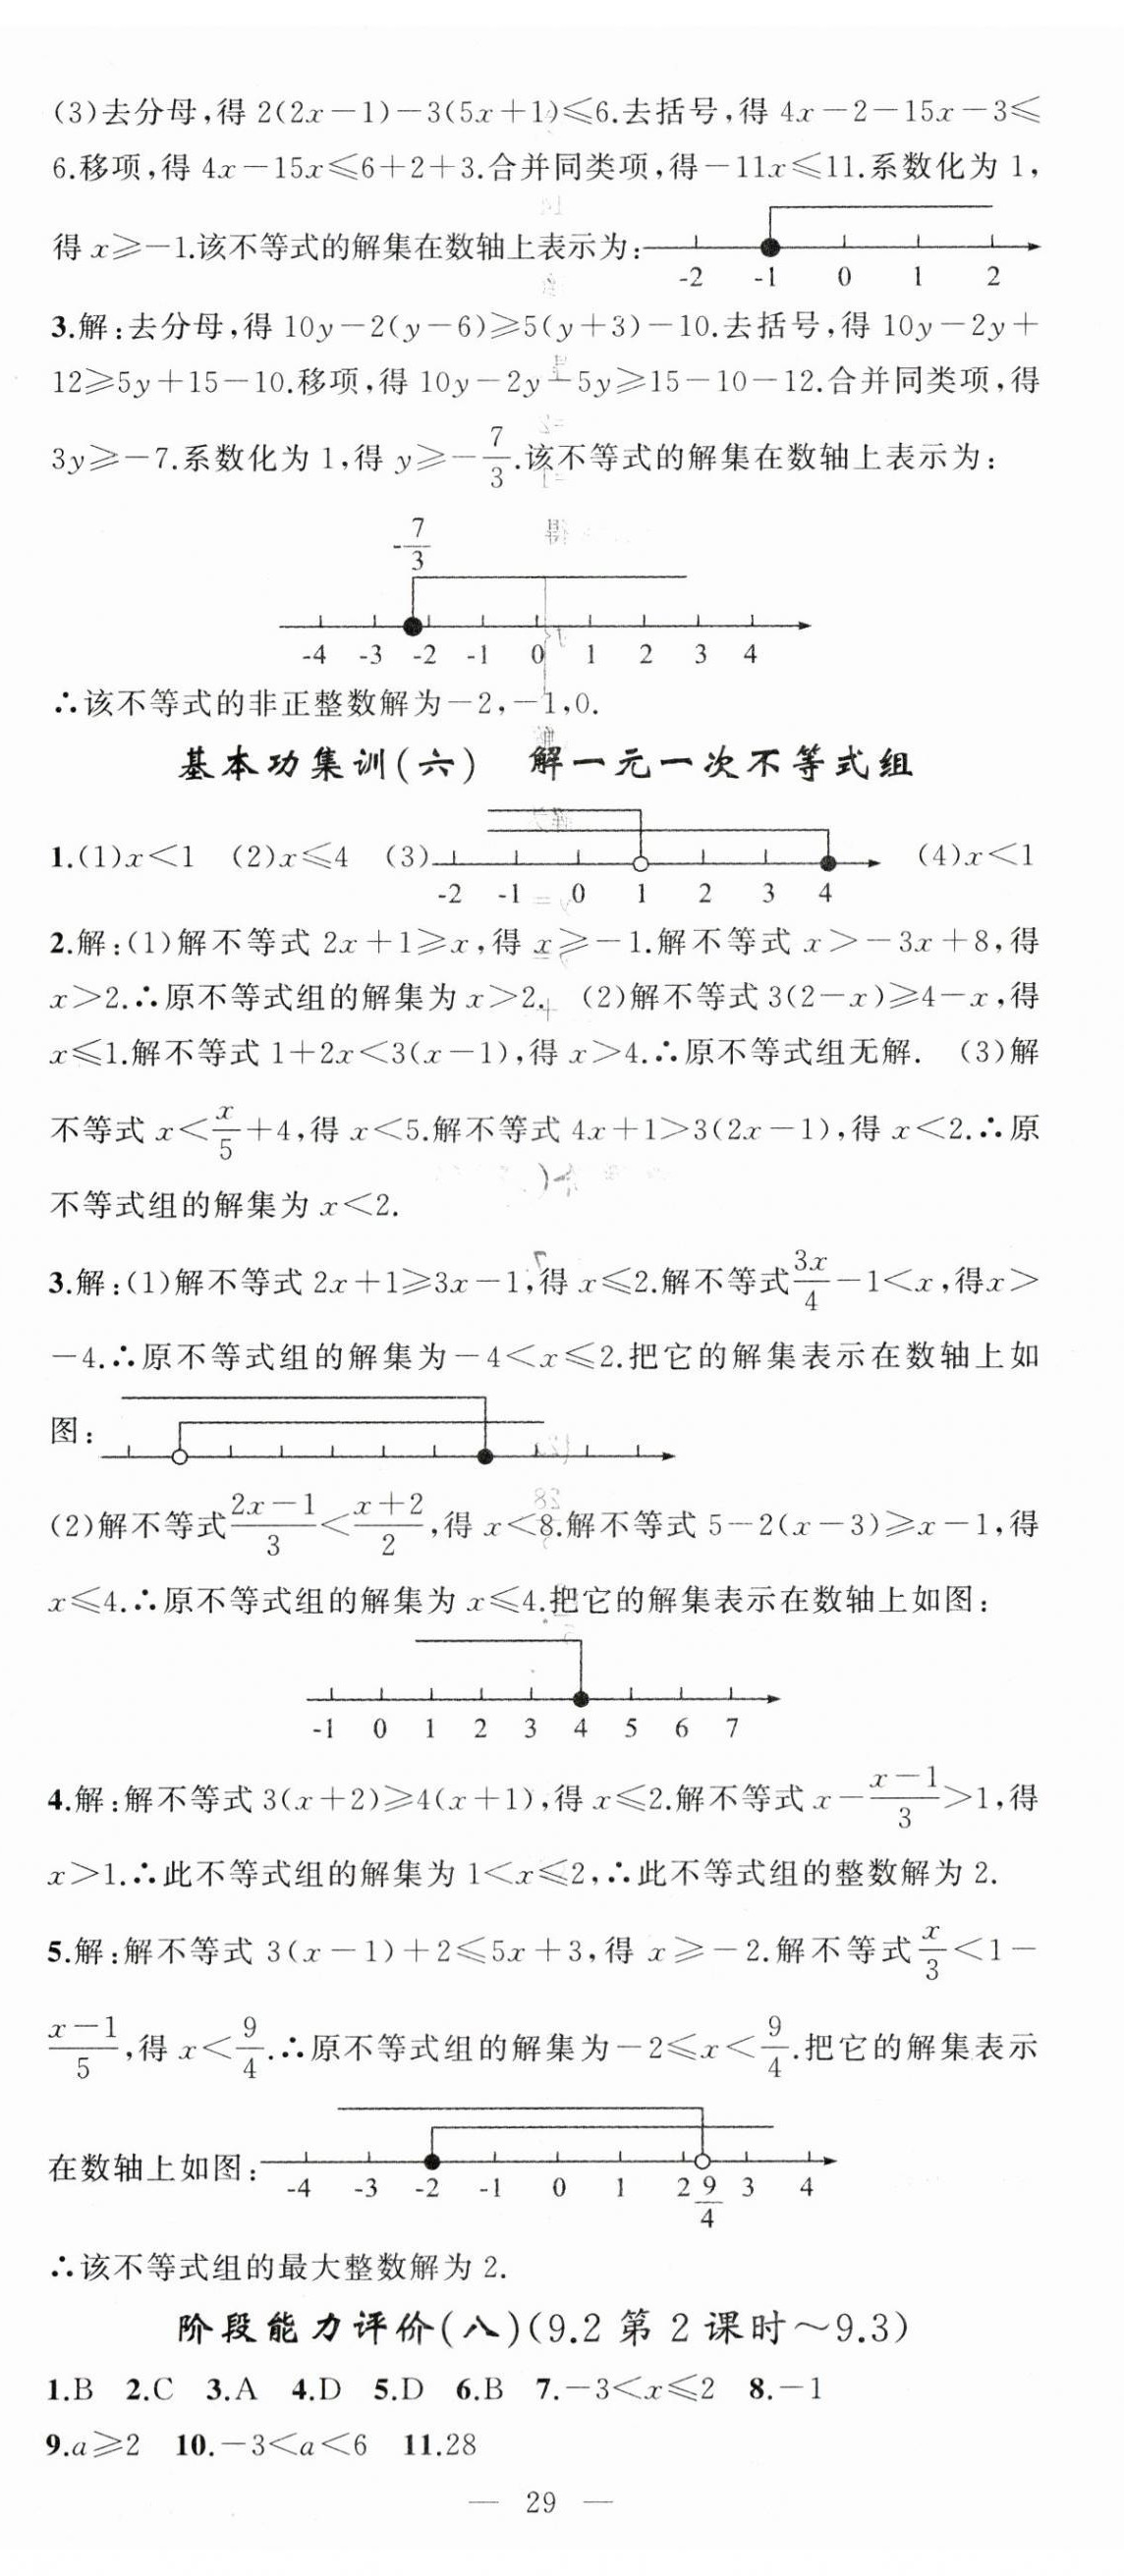 (3)去分母,得 2(2x-1)-3(5x+1)≤6.去括号,得 4x-2-15x-3≤
6.移项,得 4x-15x≤6+2+3.合并同类项,得-11x≤11.系数化为 1,
得 x≥-1.该不等式的解集在数轴上表示为:
-2 -1 0 1 2
3.解:去分母,得 10y-2(y-6)≥5(y+3)-10.去括号,得 10y-2y+
12≥5y+15-10.移项,得 10y-2y-5y≥15-10-12.合并同类项,得
3y≥-7.系数化为 1,得 y≥-7/3.该不等式的解集在数轴上表示为:
-7/3
-4 -3 -2 -1 0 1 2 3 4
∴该不等式的非正整数解为-2,-1,0.
基本功集训(六) 解一元一次不等式组
1.(1)x<1 (2)x≤4 (3) (4)x<1
-2 -1 0 1 2 3 4
2.解:(1)解不等式 2x+1≥x,得 x≥-1.解不等式 x>-3x+8,得
x>2.∴原不等式组的解集为 x>2. (2)解不等式 3(2-x)≥4-x,得
x≤1.解不等式 1+2x<3(x-1),得 x>4.∴原不等式组无解. (3)解
不等式 x<x/5+4,得 x<5.解不等式 4x+1>3(2x-1),得 x<2.∴原
不等式组的解集为 x<2.
3.解:(1)解不等式 2x+1≥3x-1,得 x≤2.解不等式3x/4-1<x,得x>
-4.∴原不等式组的解集为-4<x≤2.把它的解集表示在数轴上如
图:
(2)解不等式(2x-1)/3<(x+2)/2,得 x<8.解不等式 5-2(x-3)≥x-1,得
x≤4.∴原不等式组的解集为 x≤4.把它的解集表示在数轴上如图:
-1 0 1 2 3 4 5 6 7
4.解:解不等式 3(x+2)≥4(x+1),得 x≤2.解不等式 x-(x-1)/3>1,得
x>1.∴此不等式组的解集为 1<x≤2,∴此不等式组的整数解为 2.
5.解:解不等式 3(x-1)+2≤5x+3,得 x≥-2.解不等式x/3<1-
(x-1)/5,得 x<9/4.∴原不等式组的解集为-2≤x<9/4.把它的解集表示
在数轴上如图:
-4 -3 -2 -1 0 1 2 9/4 3 4
∴该不等式组的最大整数解为 2.
阶段能力评价(八)(9.2 第 2 课时～9.3)
1.B 2.C 3.A 4.D 5.D 6.B 7.-3<x≤2 8.-1
9.a≥2 10.-3<a<6 11.28
— 29 —